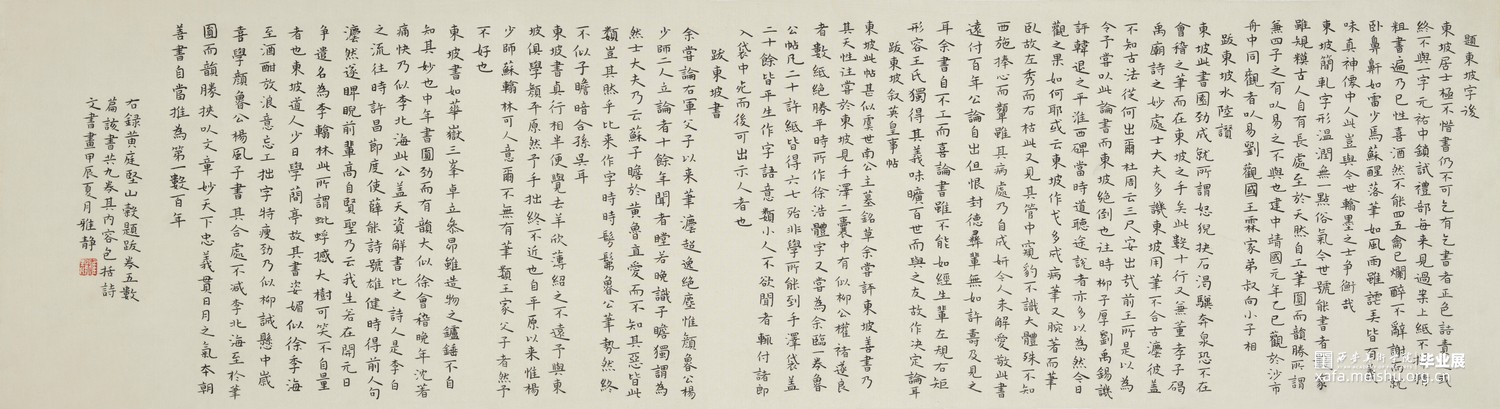 題東坡字後
東坡居士極不惜書仍不可乞有乞書者正色詰責之或
終不與一字元祐中鎖試禮部每來見過案上紙不擇精
粗書遍乃已性喜酒然不能四五龠已爛醉不辭謝而就
卧鼻鼾如雷少焉蘇醒落筆如風雨雖謔弄皆有義
味真神僊中人此豈與今世翰墨之士爭衡哉
東坡簡軋字形温潤無一點俗氣今世號能書者數家
雖規橅古人自有長處至於天然自工筆圓而韻勝所謂
兼四子之有以易之不與也建中靖國元年乙巳觀於沙市
舟中同觀者以易劉觀國王霖家弟叔向小子相
跋東坡水陸讚
東坡此書圓勁成就所謂怒猊抉石渴驥奔泉恐不在
會稽之筆而在東坡之手矣此數十行又兼董孝子碣
禹廟詩之妙處士大夫多譏東坡用筆不合古灋彼蓋
不知古法從何出爾杜周云三尺安出哉前王所是以為
令予嘗以此論書而東坡絕倒也往時柳子厚劉禹錫譏
評韓退之平淮西碑當時道聽途說者亦多以為然今日
觀之果如何耶或云東坡作戈多成病筆又腕著而筆
臥故左秀而右枯此又見其管中窺豹不識大體殊不知
西施捧心而顰雖其病處乃自成妍今人未解愛敬此書
遠付百年公論自出但恨封德彝輩無如許壽及見之
耳余書自不工而喜論書雖不能如經生輩左規右矩
形容王氏獨得其義味曠百世而與之友故作決定論耳
跋東坡叙英皇事帖
東坡此帖甚似虞世南公主墓銘草余嘗評東坡善書乃
其天性往嘗於東坡見手澤二囊中有似柳公權褚遂良
者數紙絕勝平時所作徐浩體字又嘗為余臨一卷魯
公帖凡二十許紙皆得六七殆非學所能到手澤袋蓋
二十餘皆平生作字語意類小人不欲聞者輒付諸郎
入袋中死而後可出示人者也
跋東坡書
余嘗論右軍父子以來筆灋超逸絕塵惟顏魯公楊
少師二人立論者十餘年聞者瞠若晚識子瞻獨謂為
然士大夫乃云蘇子瞻於黄魯直愛而不知其惡皆此
類豈其然乎比來作字時時髣髴魯公筆勢然終
不似子瞻暗合孫吳耳
東坡書真行相半便覺去羊欣薄紹之不遠予與東
坡俱學顏平原然予手拙終不近也自平原以來惟楊
少師蘇翰林可人意爾不無有筆類王家父子者然予
不好也
東坡書如華嶽三峯卓立參昂雖造物之鑪錘不自
知其妙也中年書圓勁而有韻大似徐會稽晚年沈著
痛快乃似李北海此公盖天資解書比之詩人是李白
之流往時許昌節度使薛能詩號雄健時得前人句
灋然遂睥睨前輩高自賢聖乃云我生若在開元日
争遣名為李翰林此所謂蚍蜉撼大樹可笑不自量
者也東坡道人少日學蘭亭故其書姿媚似徐季海
至酒酣放浪意忘工拙字特瘦勁乃似柳誠懸中歲
喜學顏魯公楊風子書其合處不減李北海至於筆
圓而韻勝挾以文章妙天下忠義貫日月之氣本朝
善書自當推為第一數百年
右録黄庭堅山谷題跋卷五數
篇該書共九卷其内容包括詩
文書畫甲辰夏月雅静
西安美術學院 毕业展
xafa.meishu.org.cn